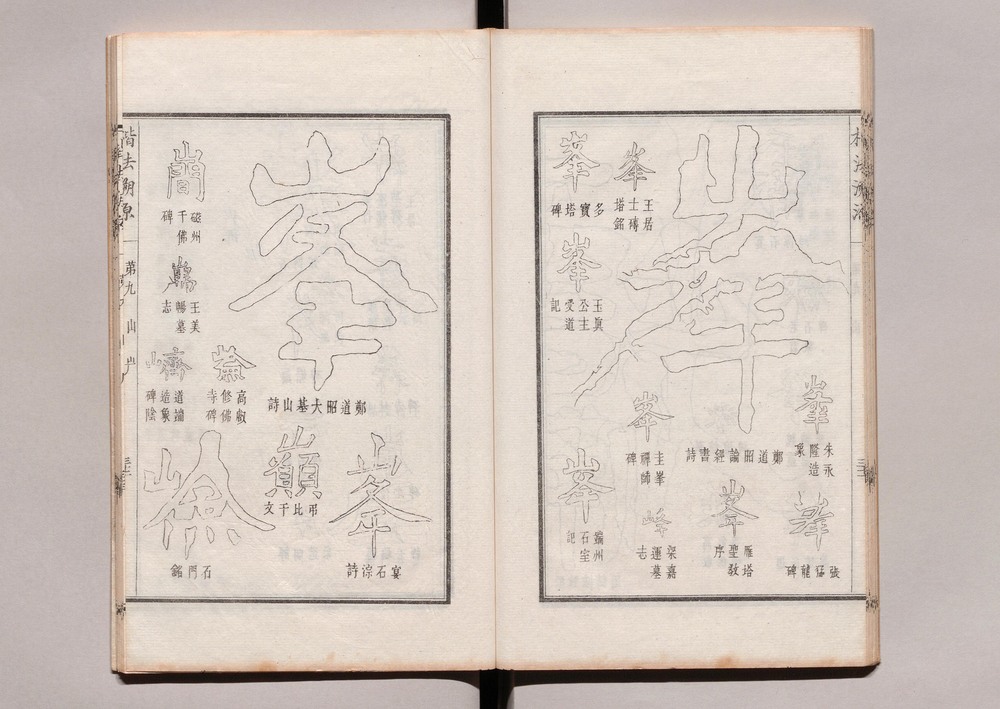 峯
朱永
隆造
象
峯
張猛龍碑
峯
鄭道昭論經書詩
峯
雁塔
聖教
序
峯
王居
士磚
塔銘
峯
圭峯
禪師
碑
峰
梁嘉
運墓
志
峯
多寶塔碑
峯
玉真
公主
受道
記
峯
鄭州
石室
記
峯
鄭道昭大基山詩
峯
宴石淙詩
巔
弔比干文
高叡
修佛
寺碑
磁州
千佛
碑
王美
暢墓
志
道論
造象
碑陰
石門銘
第九
山